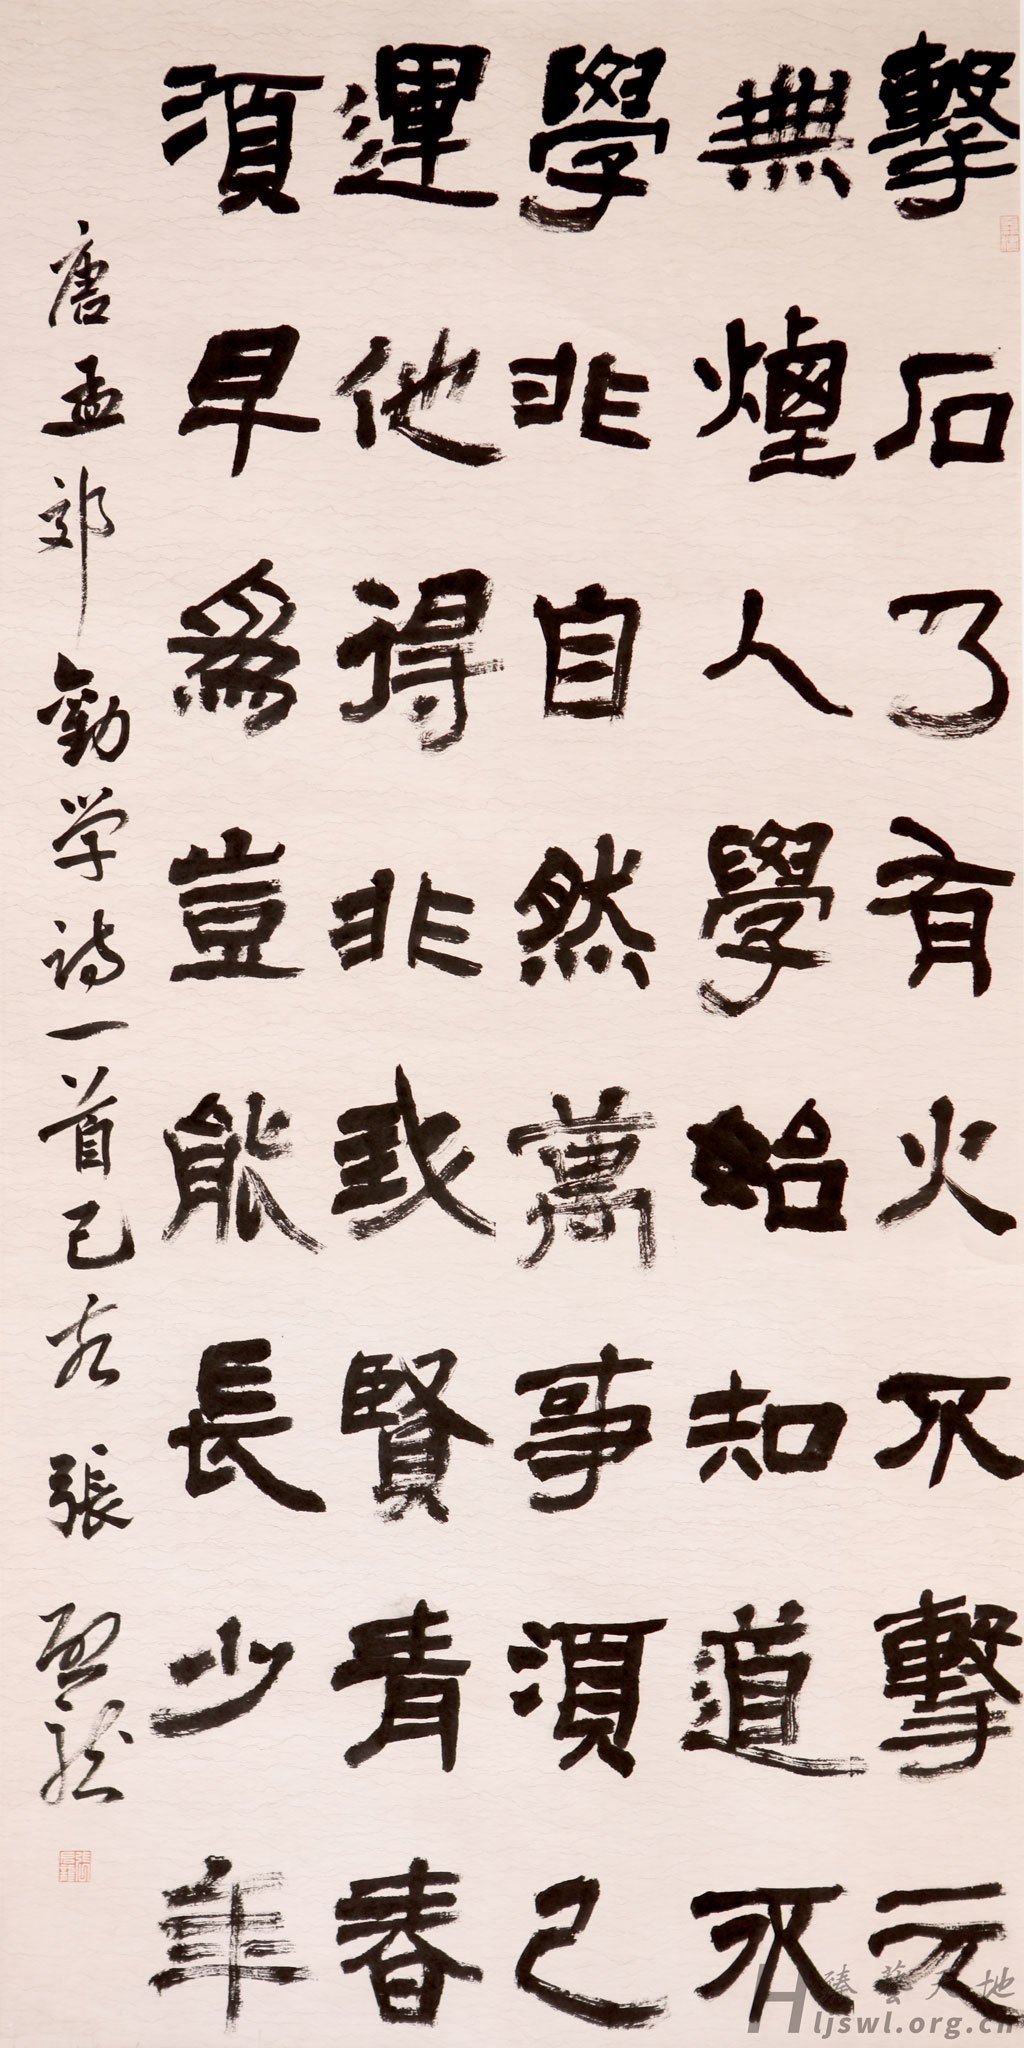 擊石乃有火不擊元
無煙人學始知道不
學非自然萬事須己
運他得非我賢青春
須早為豈能長少年
唐孟郊勸学诗一首己亥張
臻藝天地
Hljswl.org.cn